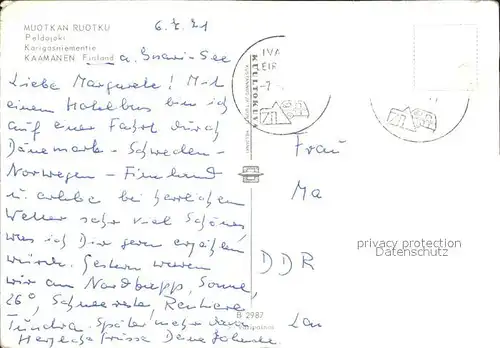 MUOTKAN RUOTKU
Peldojoki
Karigasniementie
KAAMANEN Finland a. Inari-See
6.7.71
Liebe Margarete! Mit
einem Hotelbus bin ich
auf einer Fahrt durch
Dänemark - Schweden -
Norwegen - Finnland
u. erlebe bei herrlichem
Wetter sehr viel Schönes,
was ich Dir gern erzählen
würde. Gestern waren
wir am Nordkapp, Sonne,
26°, Schneereste, Rentiere,
Tundra. Später mehr davon
Herzliche Grüsse Deine
KUULTOKUVA
IVA
EIR
-7
Frau
Ma
DDR
Lan
B 2987
privacy protection
Datenschutz